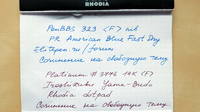 RHODIA
PenBBS 323 <F> nib
PR American Blue Fast Dry
Elitepen.ru/forum
Сочинение на свободную тему
Platinum #3776 14K <F>
Iroshizuku Yama-Budo
Rhodia dotpad
Сочинение на свободную тему